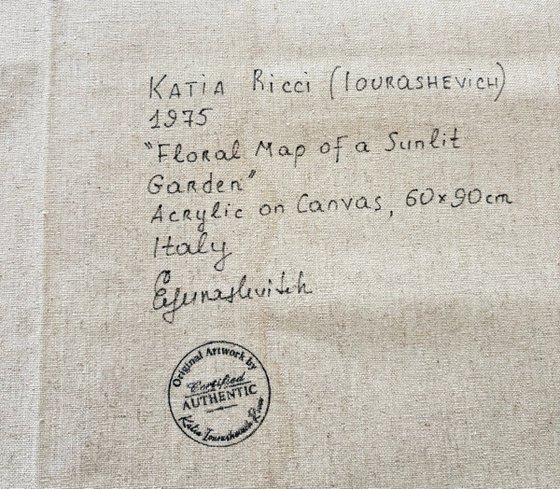 Katia Ricci (Iourashevich)
1975
"Floral Map of a Sunlit
Garden"
Acrylic on Canvas, 60x90cm
Italy
Original Artwork by
Certified
AUTHENTIC
Katia Iourashevich Ricci